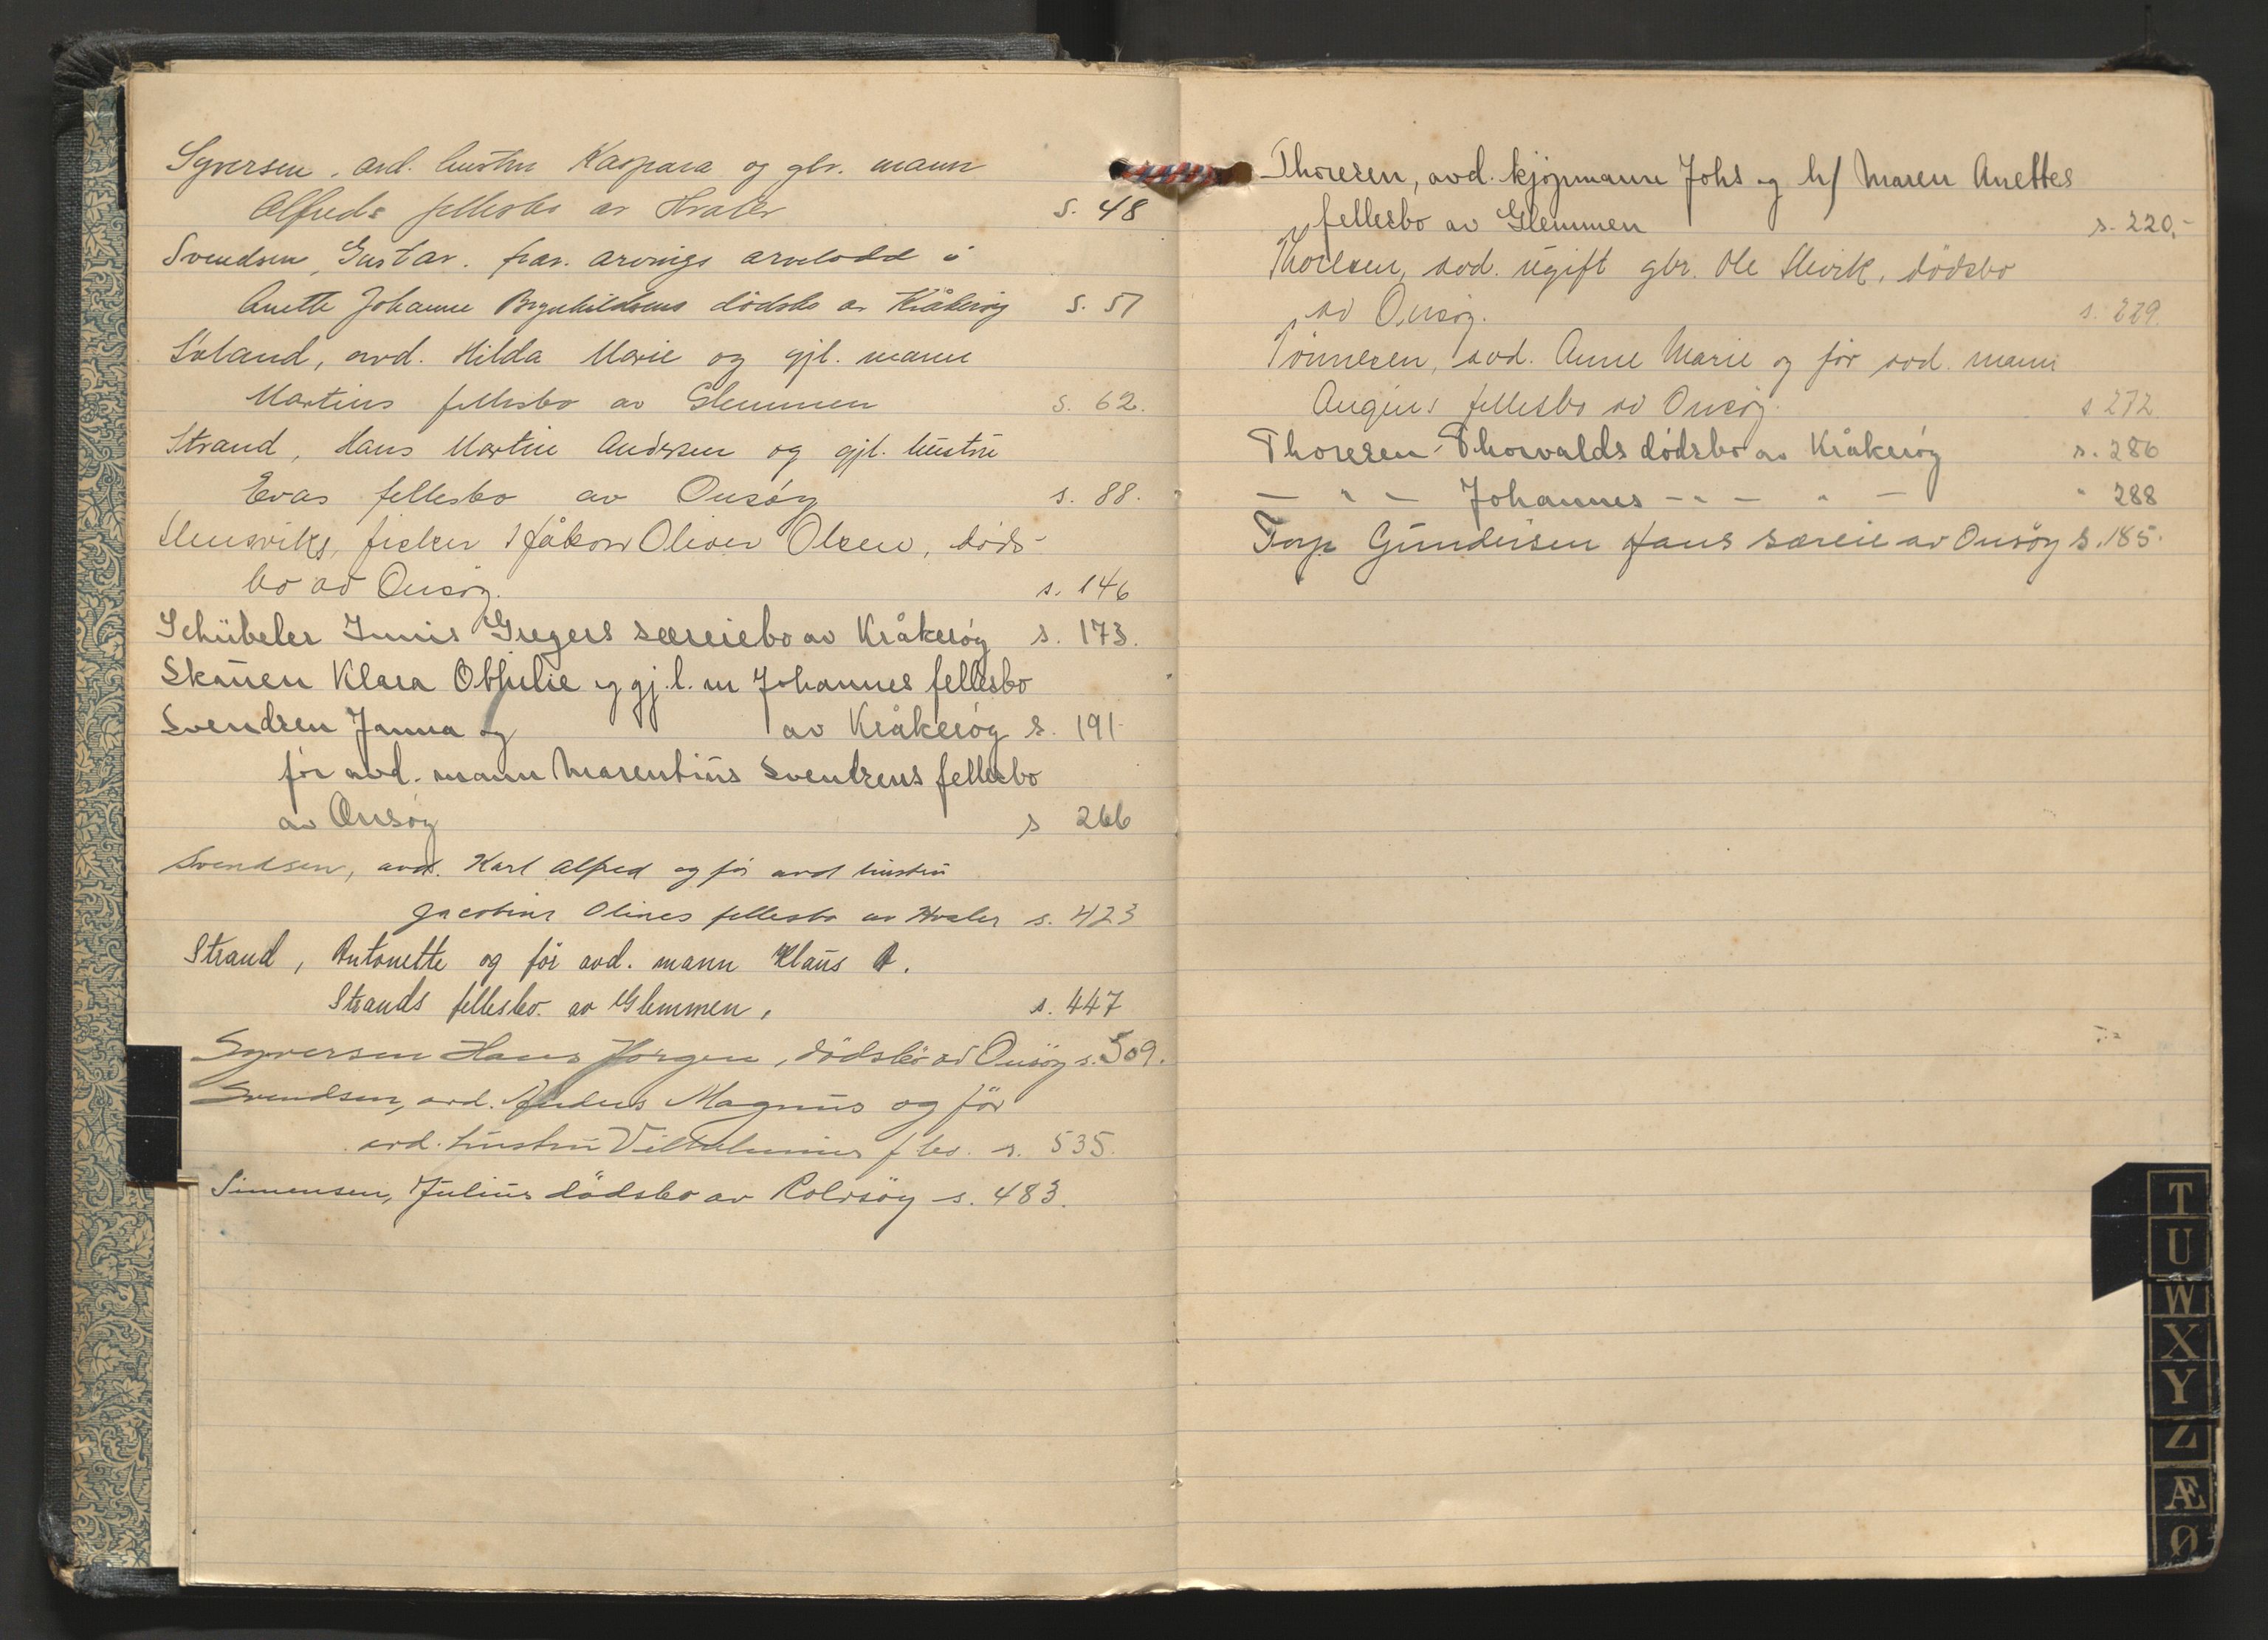 Syversen, avd. hustru Kaspara og gbr. mann
Alfreds fellesbo av Hvaler s. 48
Svendsen, Gustav. frav. arvings arvelodd i
Anette Johanne Brynhildsens dødsbo av Kråkerøy s. 51
Såland, avd. Hilda Marie og gjl. mann
Martins fellesbo av Glemmen s. 62.
Strand, Hans Martin Andersen og gjl. hustru
Evas fellesbo av Onsøy s. 88.
fisker Håkon Oliver Olsen, døds-
bo av Onsøy. s. 146
Schübeler Gregers særeiebo av Kråkerøy s. 173.
Skauen Klara Othilie og gj.l. m Johannes fellesbo
av Kråkerøy s. 191-
Svendsen Janna og
før avd. mann Marentius Svendsens fellesbo
av Onsøy s 266
Svendsen, avd. Karl Alfred og før avd hustru
Jacobine Olines fellesbo av Hvaler s. 423
Strand, Antonette og før avd. mann Klaus A.
Strands fellesbo. av Glemmen, s. 447
Syversen Hans Jørgen, dødsbo av Onsøy s. 509.
Svendsen, avd. Anders Magnus og før
avd. hustru Vilhelmines f bo. s. 535.
Simensen, Julius dødsbo av Rolvsøy s. 483.
Thoresen, avd. kjøpmann Johs og h/ Maren Anettes
fellesbo av Glemmen s. 220,-
Thoresen, avd. ugift gbr. Ole dødsbo
av Onsøy. s. 229.
Tønnesen, avd. Anne Marie og før avd. mann
fellesbo av Onsøy. s 272.
Thoresen Thorvalds dødsbo av Kråkerøy s. 286
— " — Johannes — " — " — " 288
Torp Gundersen Hans særeie av Onsøy s. 185.
T
U
W
X
Y
Z
Æ
Ø